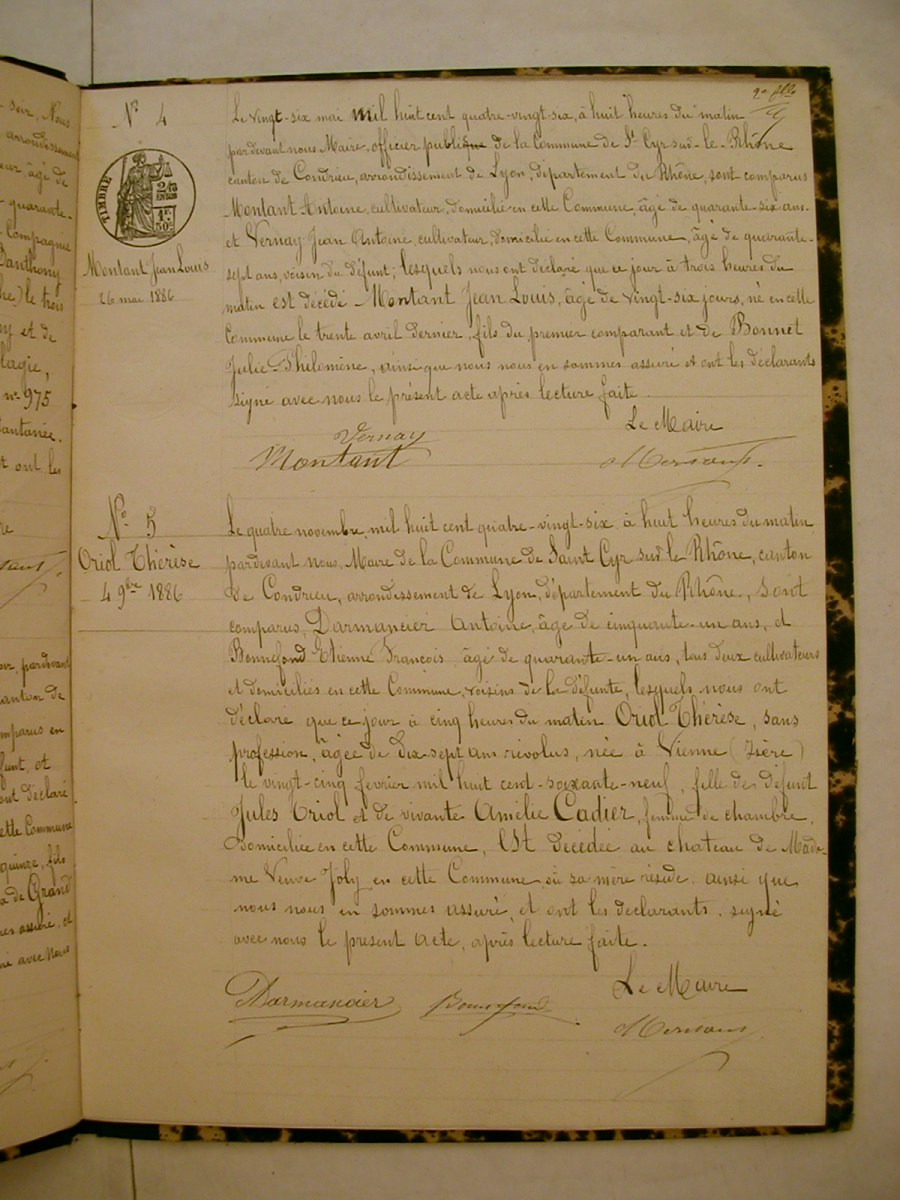 soir, Nous
arrondissement
eur, âgé de
quarante-
Compagnie
Danthony
le trois
ny et de
lagie,
n° 975
tantanée.
t ont les
re
2e flle
N° 4
TIMBRE
Montant Jean Louis
26 mai 1886
Le vingt-six mai mil huit cent quatre-vingt-six, à huit heures du matin
pardevant nous Maire, officier publique de la Commune de St Cyr sur-le-Rhône
canton de Condrieu, arrondissement de Lyon, département du Rhône, sont comparus
Montant Antoine, cultivateur, domicilié en cette Commune, âgé de quarante-six ans.
et Vernay Jean Antoine, cultivateur, domicilié en cette Commune, âgé de quarante-
sept ans, voisin du défunt; lesquels nous ont déclaré que ce jour à trois heures du
matin est décédé Montant Jean Louis, âgé de vingt-six jours, né en cette
Commune le trente avril dernier, fils du premier comparant et de Bonnet
Julie Philomène, ainsi que nous nous en sommes assuré et ont les déclarants
signé avec nous le présent acte après lecture faite.
Le Maire
Vernay
Montant
N° 5
Oriol Thérèse
4 9bre 1886
Le quatre novembre mil huit cent quatre-vingt-six à huit heures du matin
pardevant nous, Maire de la Commune de Saint Cyr sur le Rhône, canton
de Condrieu, arrondissement de Lyon, département du Rhône, sont
comparus, Darmancier Antoine, âgé de cinquante-un ans, et
Bonnefond Etienne François, âgé de quarante-un ans, tous deux cultivateurs
et domiciliés en cette Commune, voisins de la défunte, lesquels nous ont
déclaré que ce jour à cinq heures du matin Oriol Thérèse, sans
profession, âgée de dix sept ans révolus, née à Vienne (Isère)
le vingt-cinq février mil huit cent-soixante-neuf, fille de défunt
Jules Oriol et de vivante Amélie Cadier, femme de chambre,
Domiciliée en cette Commune, est décédée au chateau de Mada-
me Veuve Joly en cette Commune où sa mère réside. ainsi que
nous nous en sommes assuré, et ont les déclarants. signé
avec nous le présent acte, après lecture faite.
Le Maire
Darmancier Bonnefond
pardevant
canton de
omparus en
funt, et
ont déclaré
cette Commune
quinze, fils
de Grand
assuré, et
né avec Nous